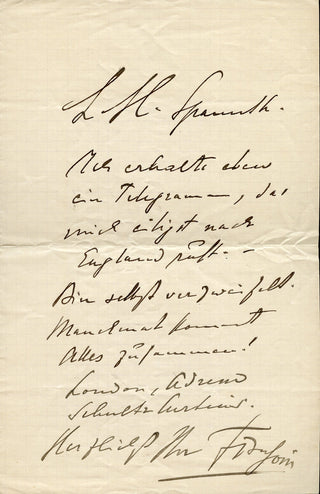 L H. Spanuth.
Ich erhalte eben
ein Telegramm, das
mich eiligst nach
England ruft. –
Bin selbst verzweifelt.
Manchmal kommt
Alles zusammen!
London, Adresse
Schultz Curtius.
Herzlichst Ihr